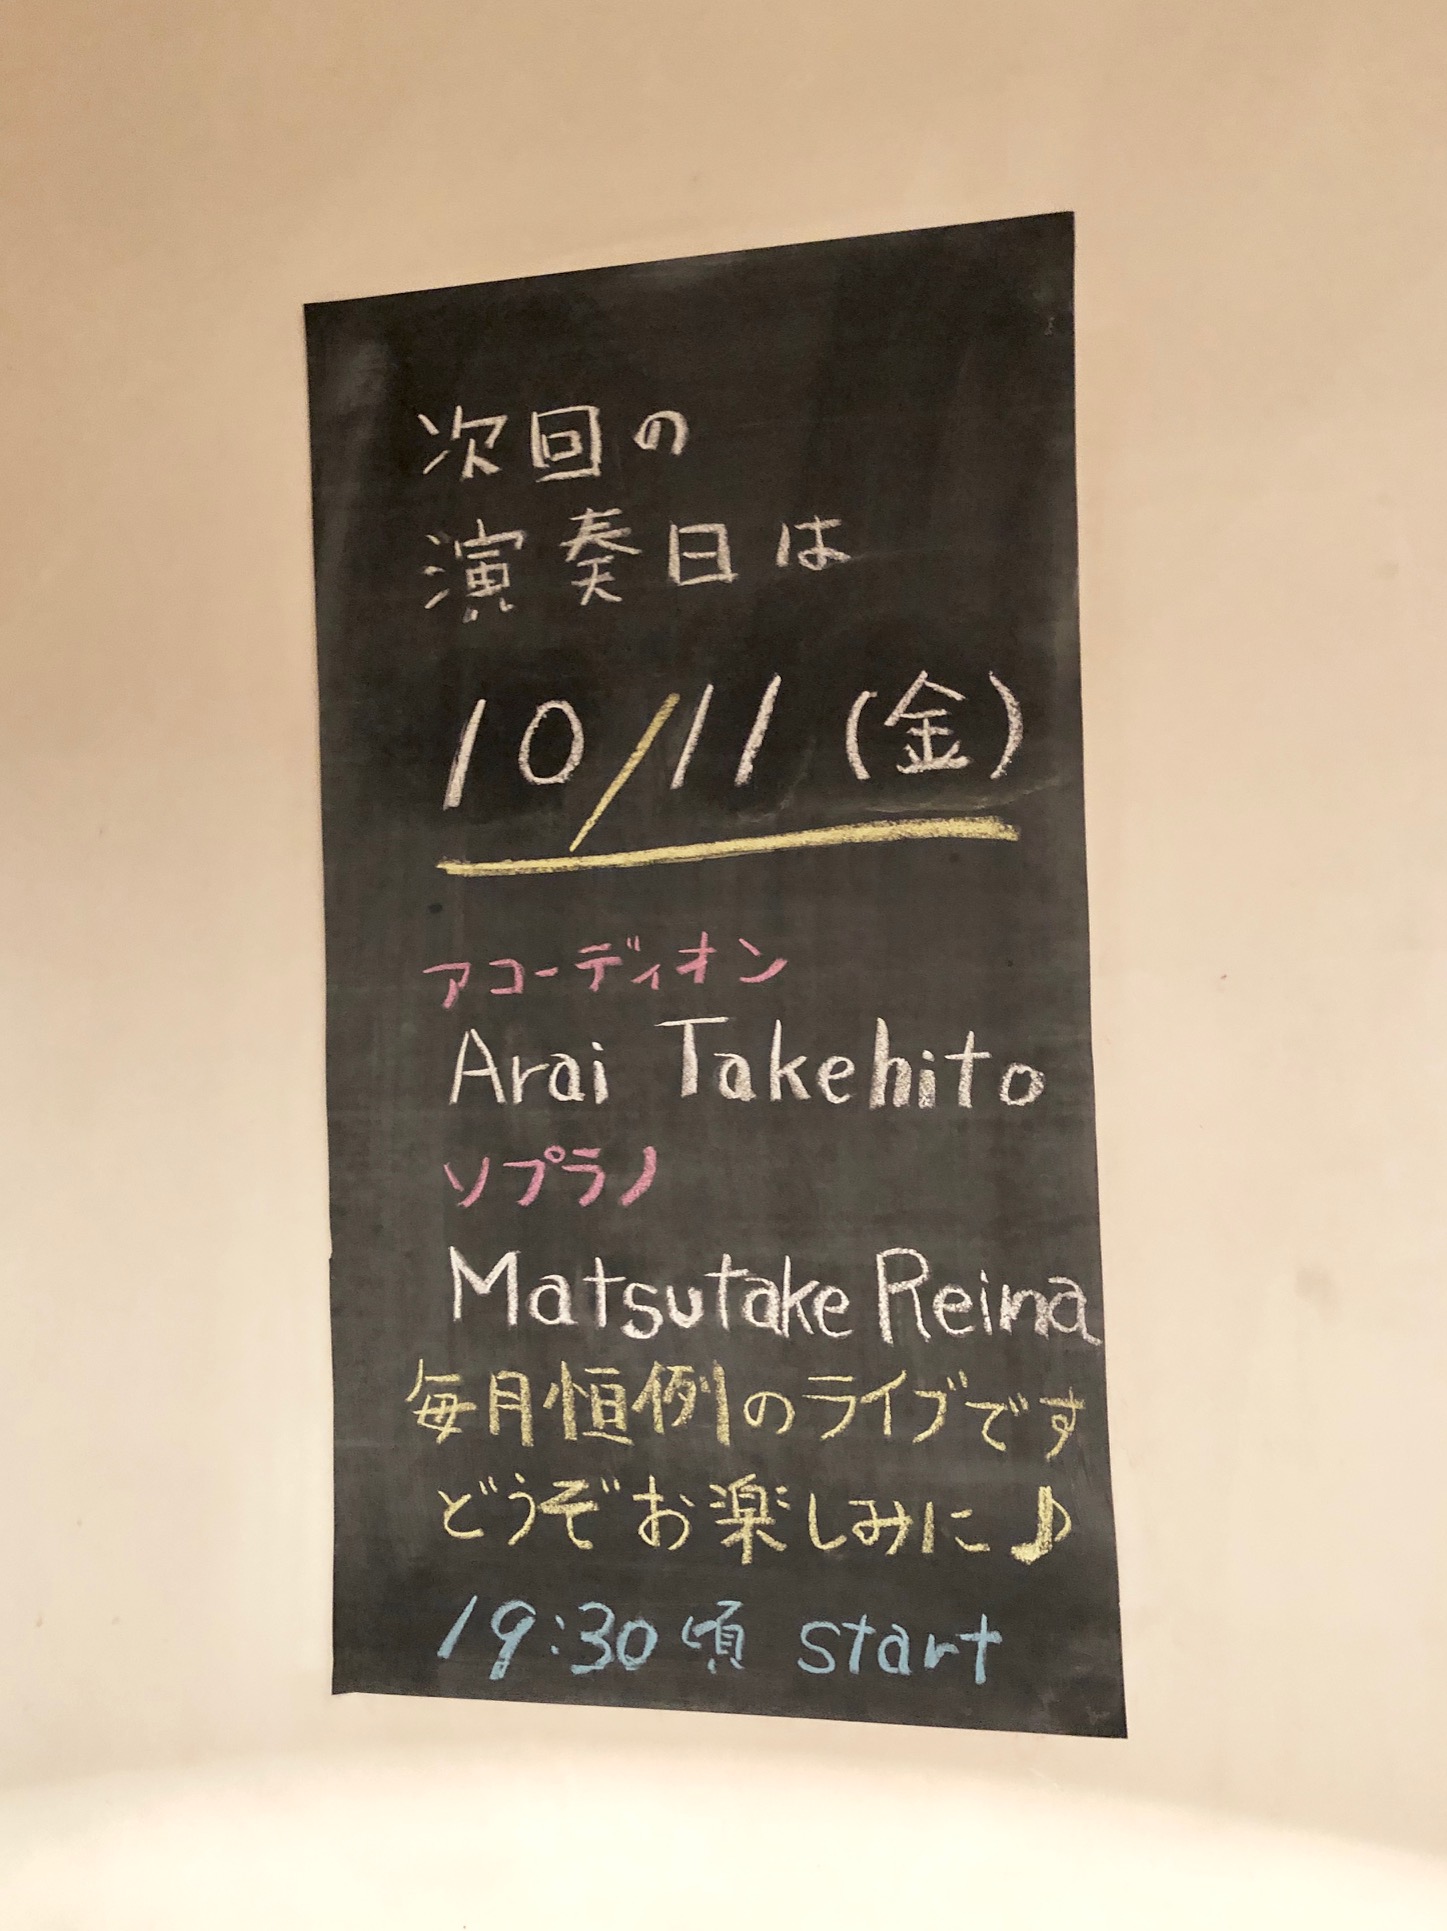 次回の
演奏日は
10/11(金)
アコーディオン
Arai Takehito
ソプラノ
Matsutake Reima
毎月恒例のライブです
どうぞお楽しみに♪
19:30頃 start